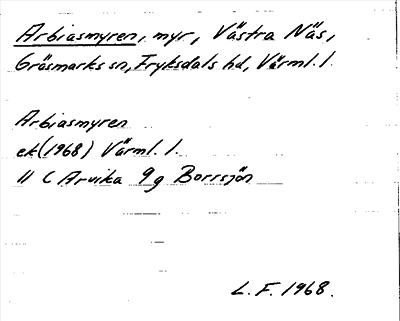 Arbiasmyren, myr, Västra Näs,
Gräsmarks sn, Fryksdals hd, Värml. l.
Arbiasmyren
ek (1968) Värml. l.
11 C Arvika 9g Borrsjön
L. F. 1968.